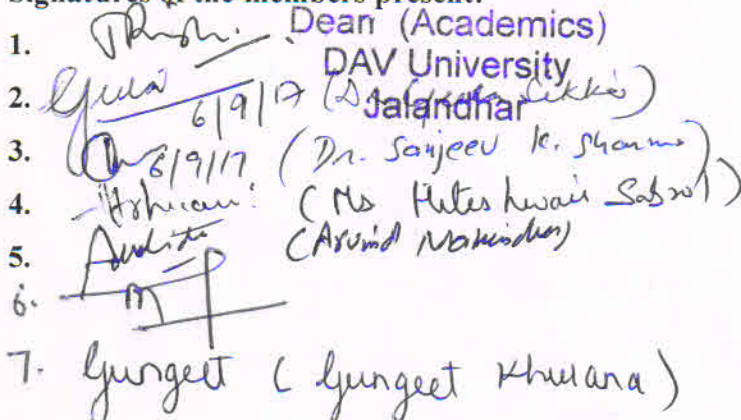 Signatures of the members present:
1. Dean (Academics)
DAV University
Jalandhar
2. 6/9/17 (Dr. Sikka)
3. 6/9/17 (Dr. Sanjeev K. Sharma)
4. (Ms Hiteshwari Sabrol)
5. (Arvind Mahindru)
6.
7. Gungeet (Gungeet Khurana)